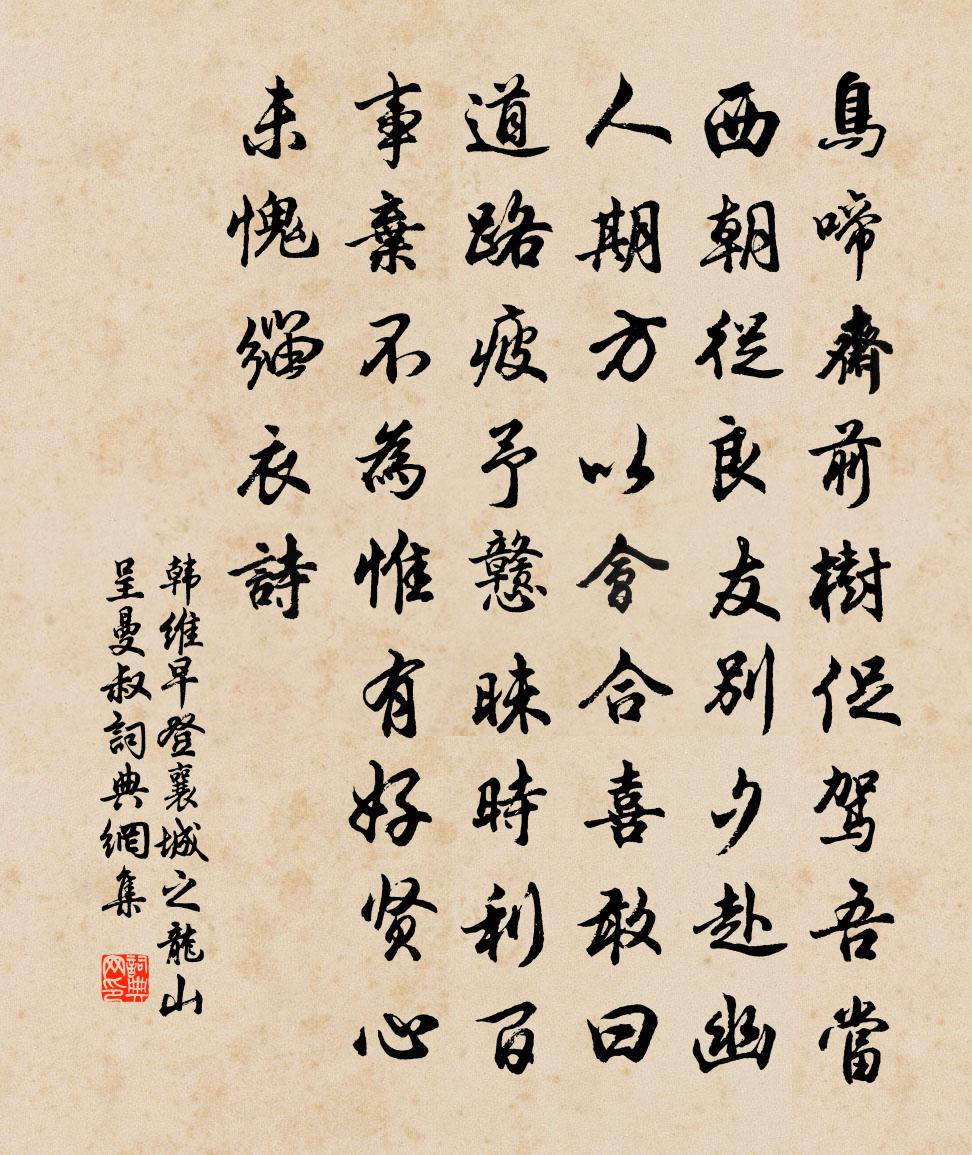 鳥啼齋前樹促駕吾當
西朝從良友別夕赴幽
人期方以會合喜敢曰
道路疲予戇昧時利百
事棄不為惟有好贤心
未愧緇衣詩
韩維早登襄城之龍山
呈曼叔詞典網集
詞典网印